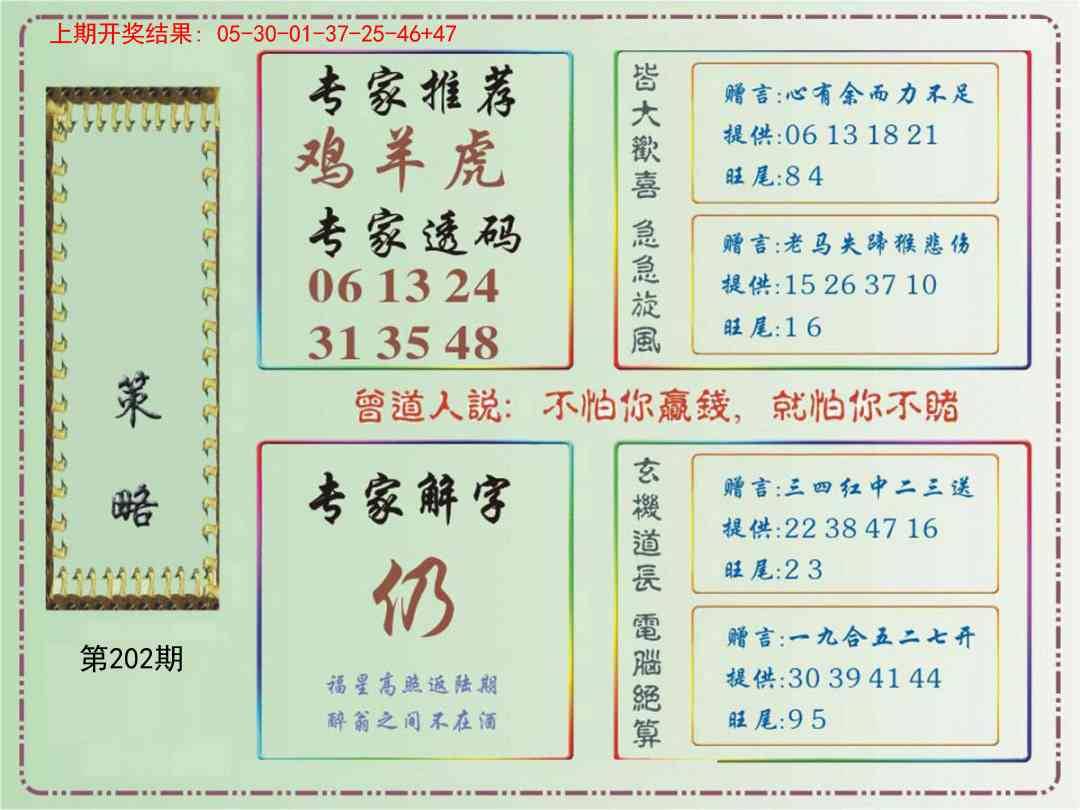 上期开奖结果: 05-30-01-37-25-46+47
策略
第202期
专家推荐
鸡羊虎
专家透码
06 13 24
31 35 48
皆大歡喜
赠言:心有余而力不足
提供:06 13 18 21
旺尾:8 4
急急旋風
赠言:老马失蹄猴悲伤
提供:15 26 37 10
旺尾:1 6
曾道人説: 不怕你贏錢, 就怕你不賭
专家解字
仍
福星高照返陆期
醉翁之间不在酒
玄機道長
赠言:三四红中二三送
提供:22 38 47 16
旺尾:2 3
電腦絕算
赠言:一九合五二七开
提供:30 39 41 44
旺尾:9 5